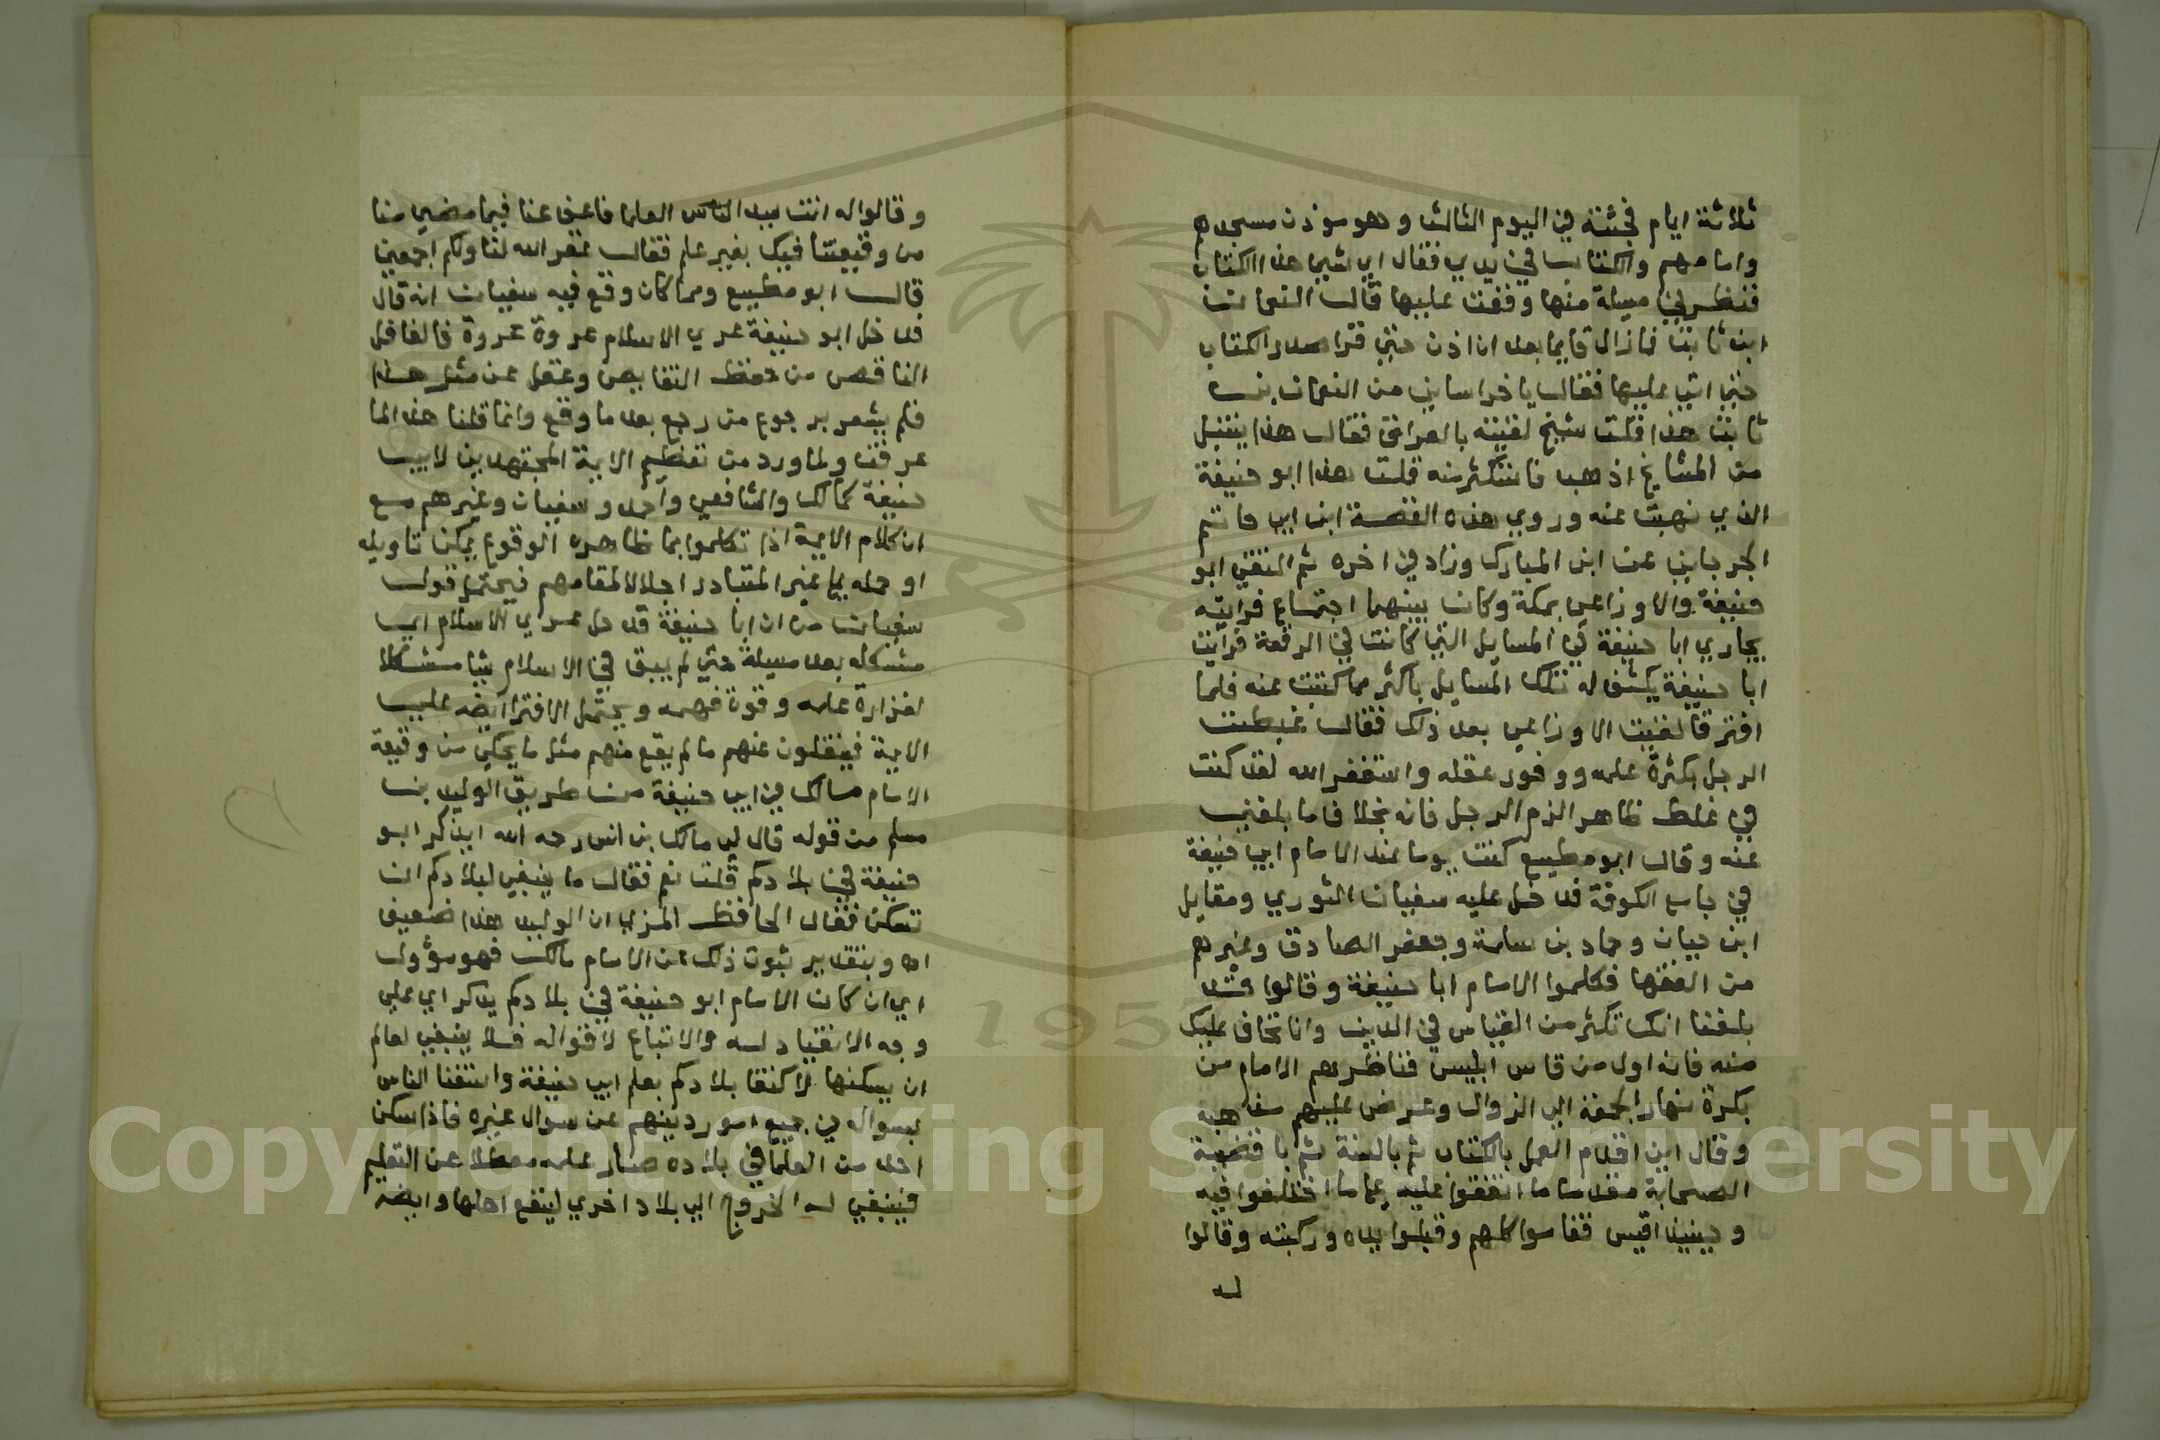 ثلاثة ايام فجئته في اليوم الثالث وهو موذن مسجدهم
وامامهم والكتاب في يدي فقال اي شي هذا الكتاب
فنظر في مسيلة منها وقفت عليها قال النعمان
ابن ثابت فما زال قايما بعد ان اذن حتي قرا صدر الكتاب
حتي اتي عليها فقال يا خراساني من النعمان بن
ثابت هذا قلت شيخ لقيته بالعراق فقال هذا ينتبل
من المشايخ اذهب فاستكثر منه قلت هذا ابو حنيفة
الذي نهيت عنه وروي هذه القصة ابن ابي حاتم
الجرجاني عن ابن المبارك وزاد في اخره ثم التقي ابو
حنيفة والاوزاعي بمكة وكان بينهما اجتماع فرايته
يجاري ابا حنيفة في المسايل التي كانت في الرقعة فرايت
ابا حنيفة يكشف له تلك المسايل باكثر مما كتبت عنه فلما
افترقا لقيت الاوزاعي بعد ذلك فقال غبطت
الرجل بكثرة علمه ووفور عقله واستغفر الله لقد كنت
في غلط ظاهر الزم الرجل فانه بخلاف ما بلغني
عنه وقال ابو مطيع كنت يوما عند الامام ابي حنيفة
في جامع الكوفة فدخل عليه سفيان الثوري ومقايل
ابن حيان وحماد بن سلمة وجعفر الصادق وغيرهم
من الفقها فكلموا الامام ابا حنيفة وقالوا قد
بلغنا انك تكثر من القياس في الدين وانا نخاف عليك
منه فانه اول من قاس ابليس فناظرهم الامام من
بكرة نهار الجمعة الي الزوال وعرض عليهم مذهبه
وقال اني اقدم العمل بالكتاب ثم بالسنة ثم باقضية
الصحابة مقدما ما اتفقوا عليه علي ما اختلفوا فيه
وحينيذ اقيس فقاموا كلهم وقبلوا يده وركبته وقالوا
له
وقالوا له انت سيد الناس العلما فاعف عنا فيما مضي منا
من وقيعتنا فيك بغير علم فقال غفر الله لنا ولكم اجمعين
قال ابو مطيع ومما كان وقع فيه سفيان انه قال
قد حل ابو حنيفة عري الاسلام عروة عروة فالغافل
الناقص من حفظ النقايص وغفل عن مثل هذا
فلم يشعر برجوع من رجع بعد ما وقع وانما قلنا هذا لما
عرفت ولما ورد من تعظيم الايمة المجتهدين لابي
حنيفة كمالك والشافعي واحمد وسفيان وغيرهم مع
ان كلام الايمة اذا تكلموا بما ظاهره الوقوع يمكن تاويله
او حمله علي غير المتبادر اجلالا لمقامهم فيحتمل قول
سفيان من ان ابا حنيفة قد حل عري الاسلام اي
مشكله بعد مسيلة حتي لم يبق في الاسلام شيا مشكلا
لغزارة علمه وقوة فهمه ويحتمل الافترا ايضه علي
الايمة فينقلون عنهم ما لم يقع منهم مثل ما يحكي من وقيعة
الامام مالك في ابي حنيفة من طريق الوليد بن
مسلم من قوله قال لي مالك بن انس رحمه الله ايذكر ابو
حنيفة في بلادكم قلت نعم فقال ما ينبغي لبلادكم ان
تسكن فقال الحافظ المزي ان الوليد هذا ضعيف
اه وبتقدير ثبوت ذلك عن الامام مالك فهو مؤول
اي ان كان الامام ابو حنيفة في بلادكم يذكر اي علي
وجه الانقياد له والاتباع لاقواله فلا ينبغي لعالم
ان يسكنها لاكتفا بلادكم بعلم ابي حنيفة واستغنا الناس
بسواله في جميع امور دينهم عن سوال غيره فاذا سكن
احد من العلما في بلاده صار علمه معطلا عن التعليم
فينبغي له الخروج الي بلاد اخري لينفع اهلها وايضه
Copyright © King Saud University
195